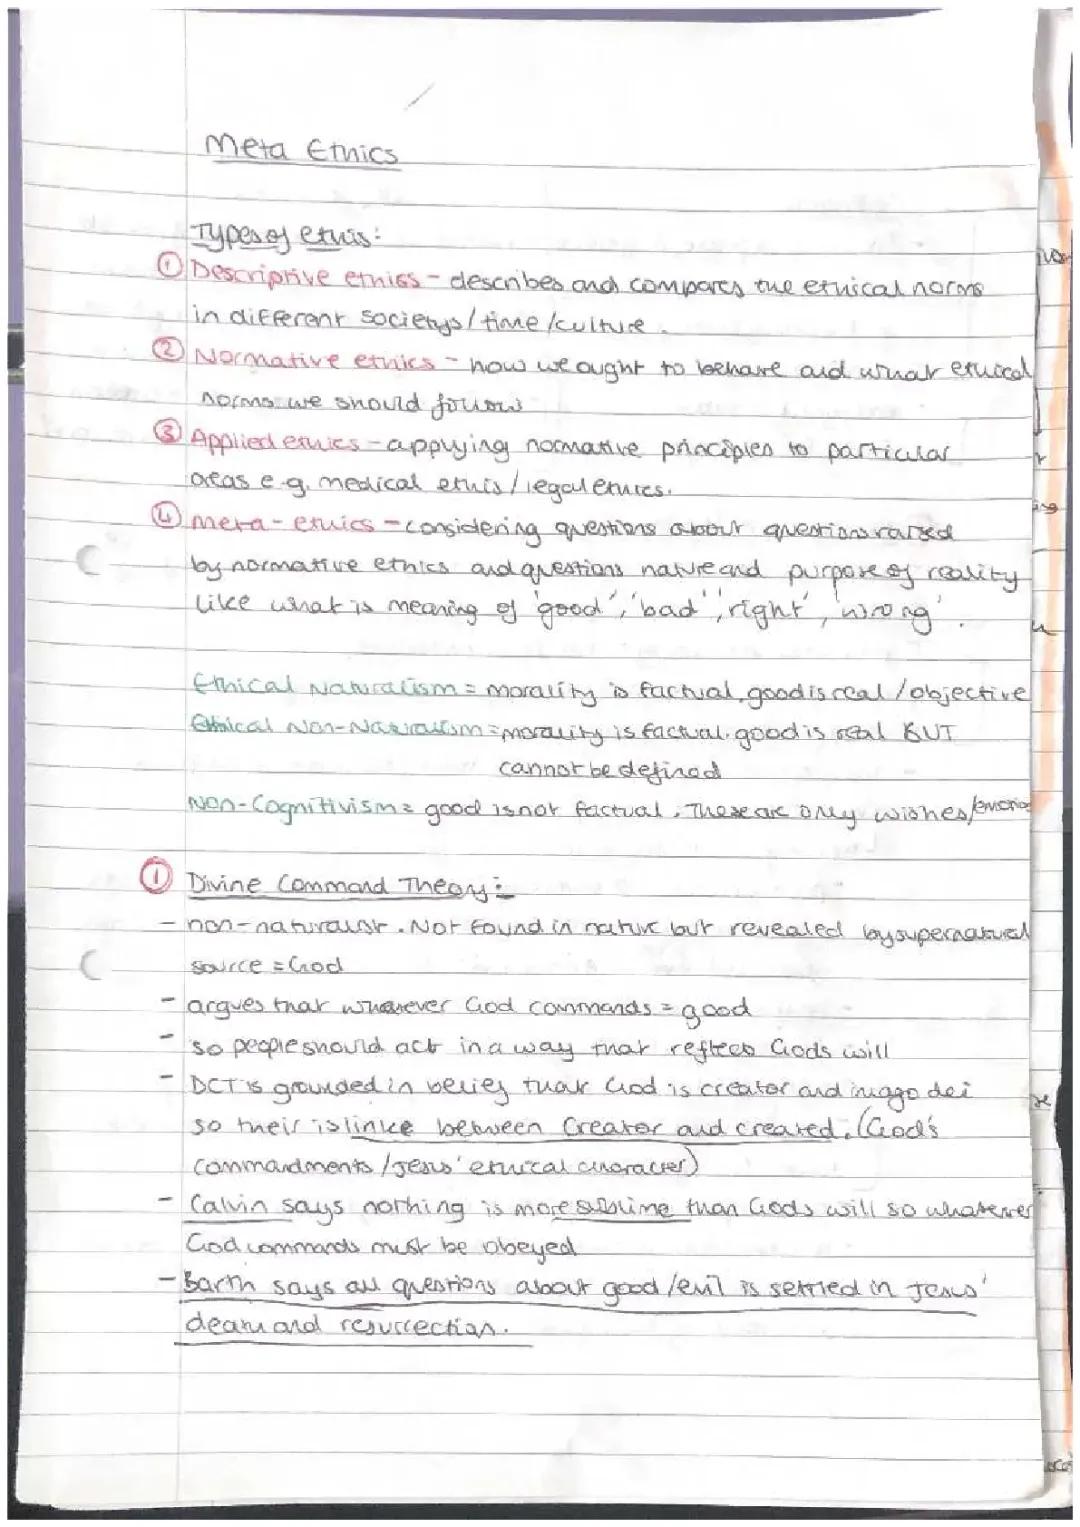 Meta Ethics
Types of ethis:
① Descriptive ethics - describes and compares the ethical norms
in different societys/time/culture.
② Normative ethics - how we ought to behave and what ethical
norms we should follow
③ Applied ethics - applying normative principles to particular
areas e.g. medical ethis/legal ethics.
④ meta-ethics - considering questions about questions raised
by normative ethics and questions nature and purpose of reality
like what is meaning of 'good', 'bad', 'right', 'wrong'.
Ethical Naturalism = morality is factual, good is real/objective
Ethical Non-Naturalism = morality is factual. good is real BUT
cannot be defined
Non-Cognitivism = good is not factual. These are only wishes/
① Divine Command Theory:
- non-naturalist. Not found in nature but revealed by supernatural
source = God
- argues that whatever God commands = good
- so people should act in a way that reflects Gods will
- DCT is grounded in belief that God is creator and imago dei
so their is link between Creator and created. (God's
commandments/Jesus' ethical character)
- Calvin says nothing is more sublime than Gods will so whatever
God commands must be obeyed
- Barth says all questions about good/evil is settled in Jesus'
death and resurrection.